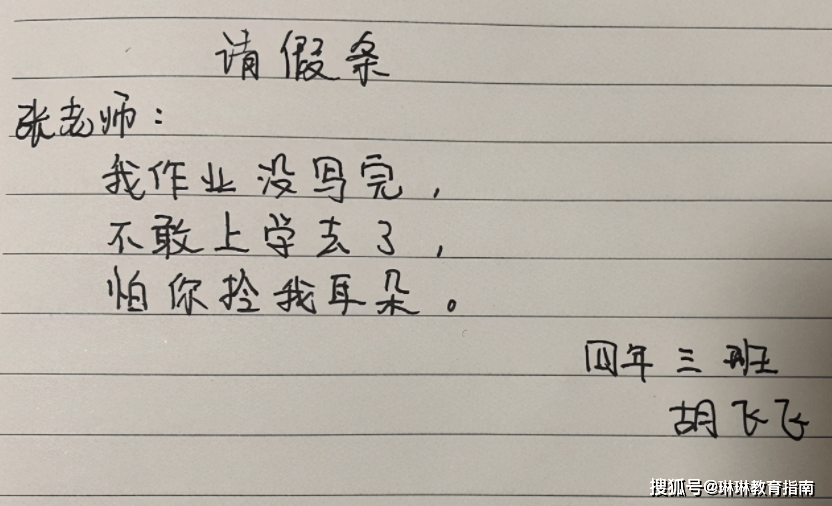 请假条
张老师：
我作业没写完，
不敢上学去了，
怕你拴我耳朵。
四年三班
胡飞飞
搜狐号@琳琳教育指南